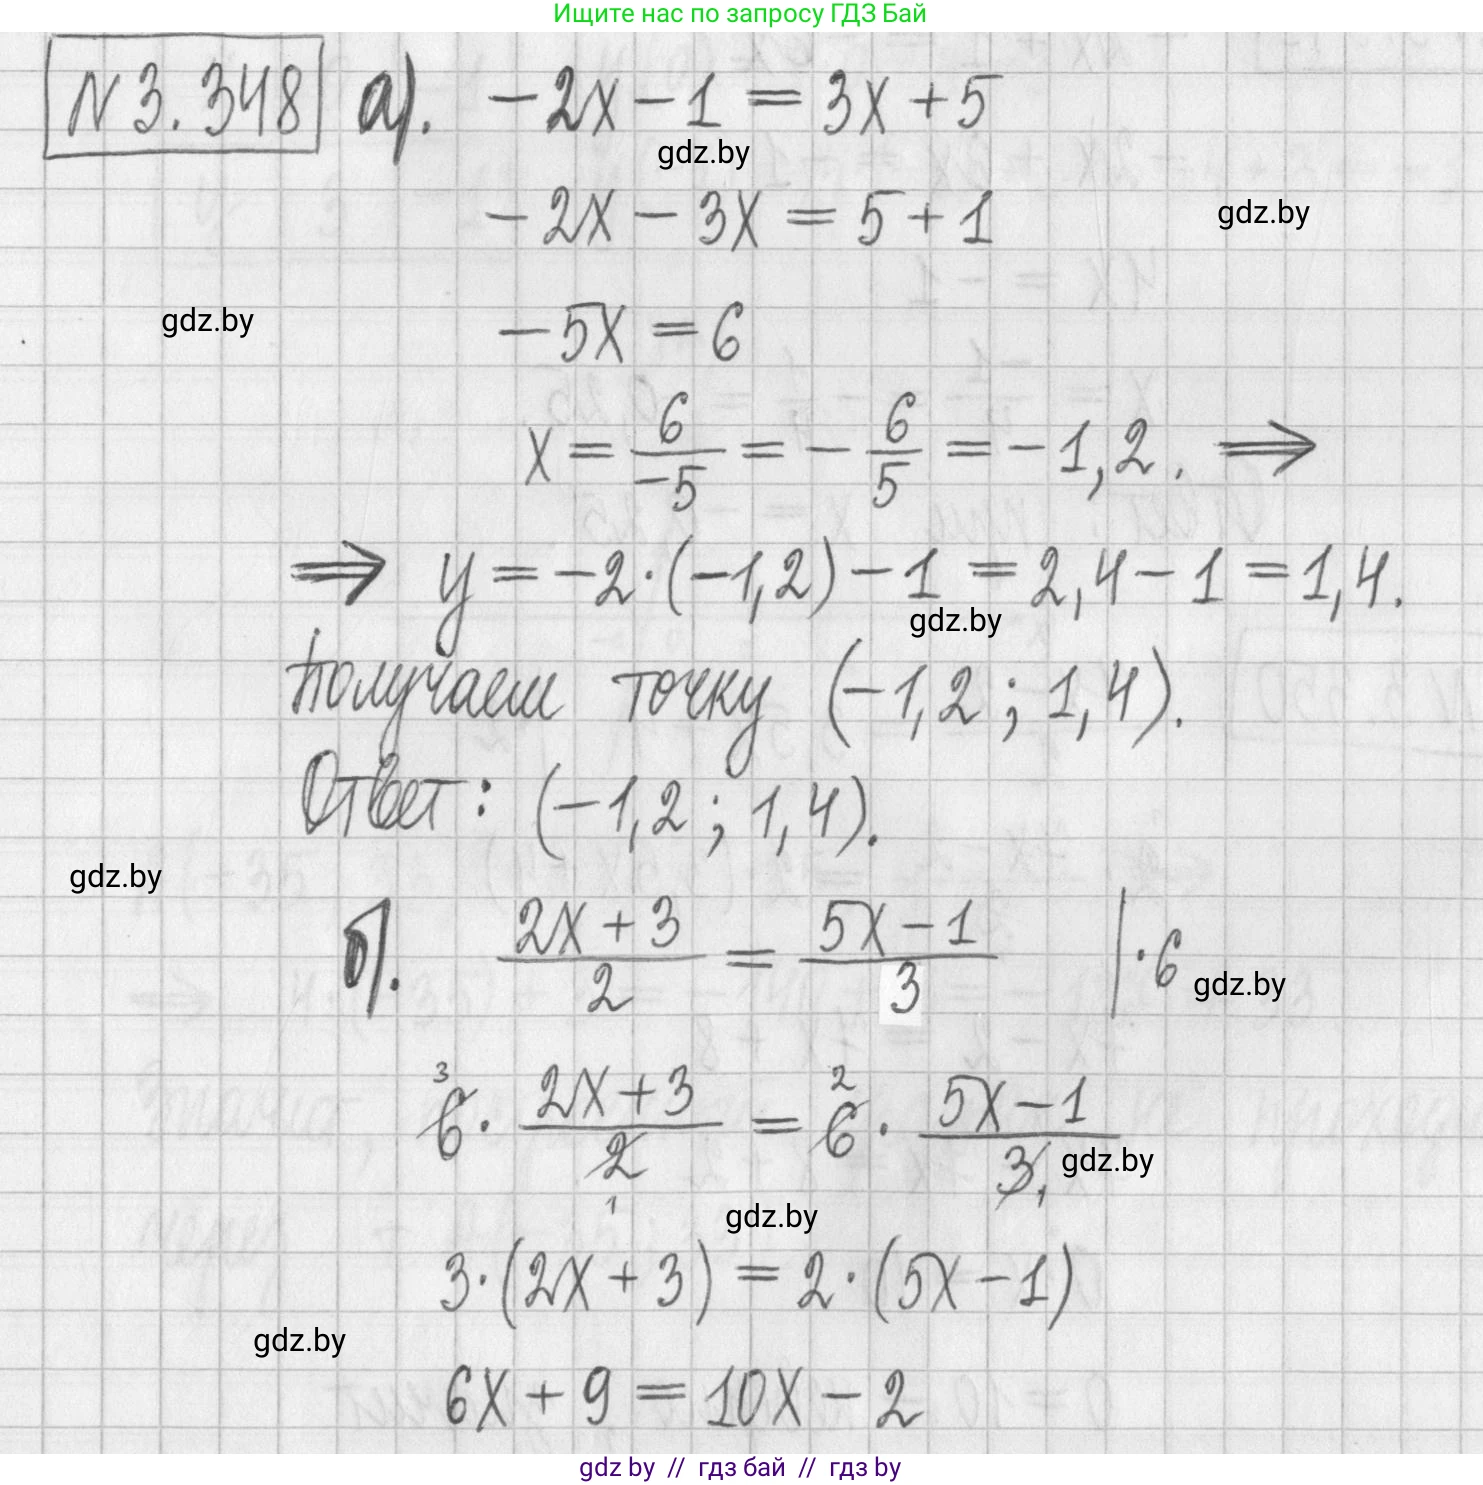 Ищите нас по запросу ГДЗ Бай
N 3.348 а). -2x - 1 = 3x + 5
gdz.by
-2x - 3x = 5 + 1
gdz.by
-5x = 6
gdz.by
x = 6/-5 = - 6/5 = -1,2. ⟹
⟹ y = -2·(-1,2) - 1 = 2,4 - 1 = 1,4.
gdz.by
Получаем точку (-1,2 ; 1,4).
Ответ: (-1,2 ; 1,4).
gdz.by
б). (2x + 3)/2 = (5x - 1)/3 | · 6
gdz.by
3 2
6 · (2x + 3)/2 = 6 · (5x - 1)/3
1 1
gdz.by
gdz.by
3·(2x + 3) = 2·(5x - 1)
gdz.by
6x + 9 = 10x - 2
gdz by // гдз бай // гдз by